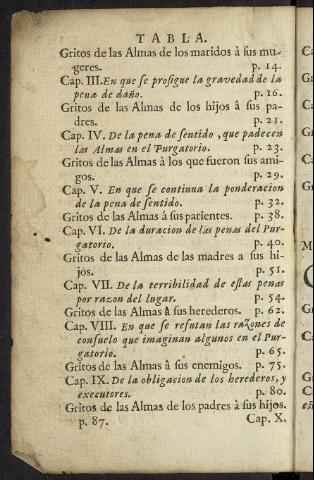 TABLA.
Gritos de las Almas de los maridos à sus mu-
geres. p. 14.
Cap. III. En que se prosigue la gravedad de la
pena de daño. p. 16.
Gritos de las Almas de los hijos â sus pa-
dres. p. 21.
Cap. IV. De la pena de sentido, que padecen
las Almas en el Purgatorio. p. 23.
Gritos de las Almas à los que fueron sus ami-
gos. p. 29.
Cap. V. En que se continua la ponderacion
de la pena de sentido. p. 32.
Gritos de las Almas á sus parientes. p. 38.
Cap. VI. De la duracion de las penas del Pur-
gatorio. p. 40.
Gritos de las Almas de las madres a sus hi-
jos. p. 51.
Cap. VII. De la terribilidad de estas penas
por razon del lugar. p. 54.
Gritos de las Almas à sus herederos. p. 62.
Cap. VIII. En que se refutan las razones de
consuelo que imaginan algunos en el Pur-
gatorio. p. 65.
Gritos de las Almas â sus enemigos. p. 75.
Cap. IX. De la obligacion de los herederos, y
executores. p. 80.
Gritos de las Almas de los padres à sus hijos.
p. 87. Cap. X.